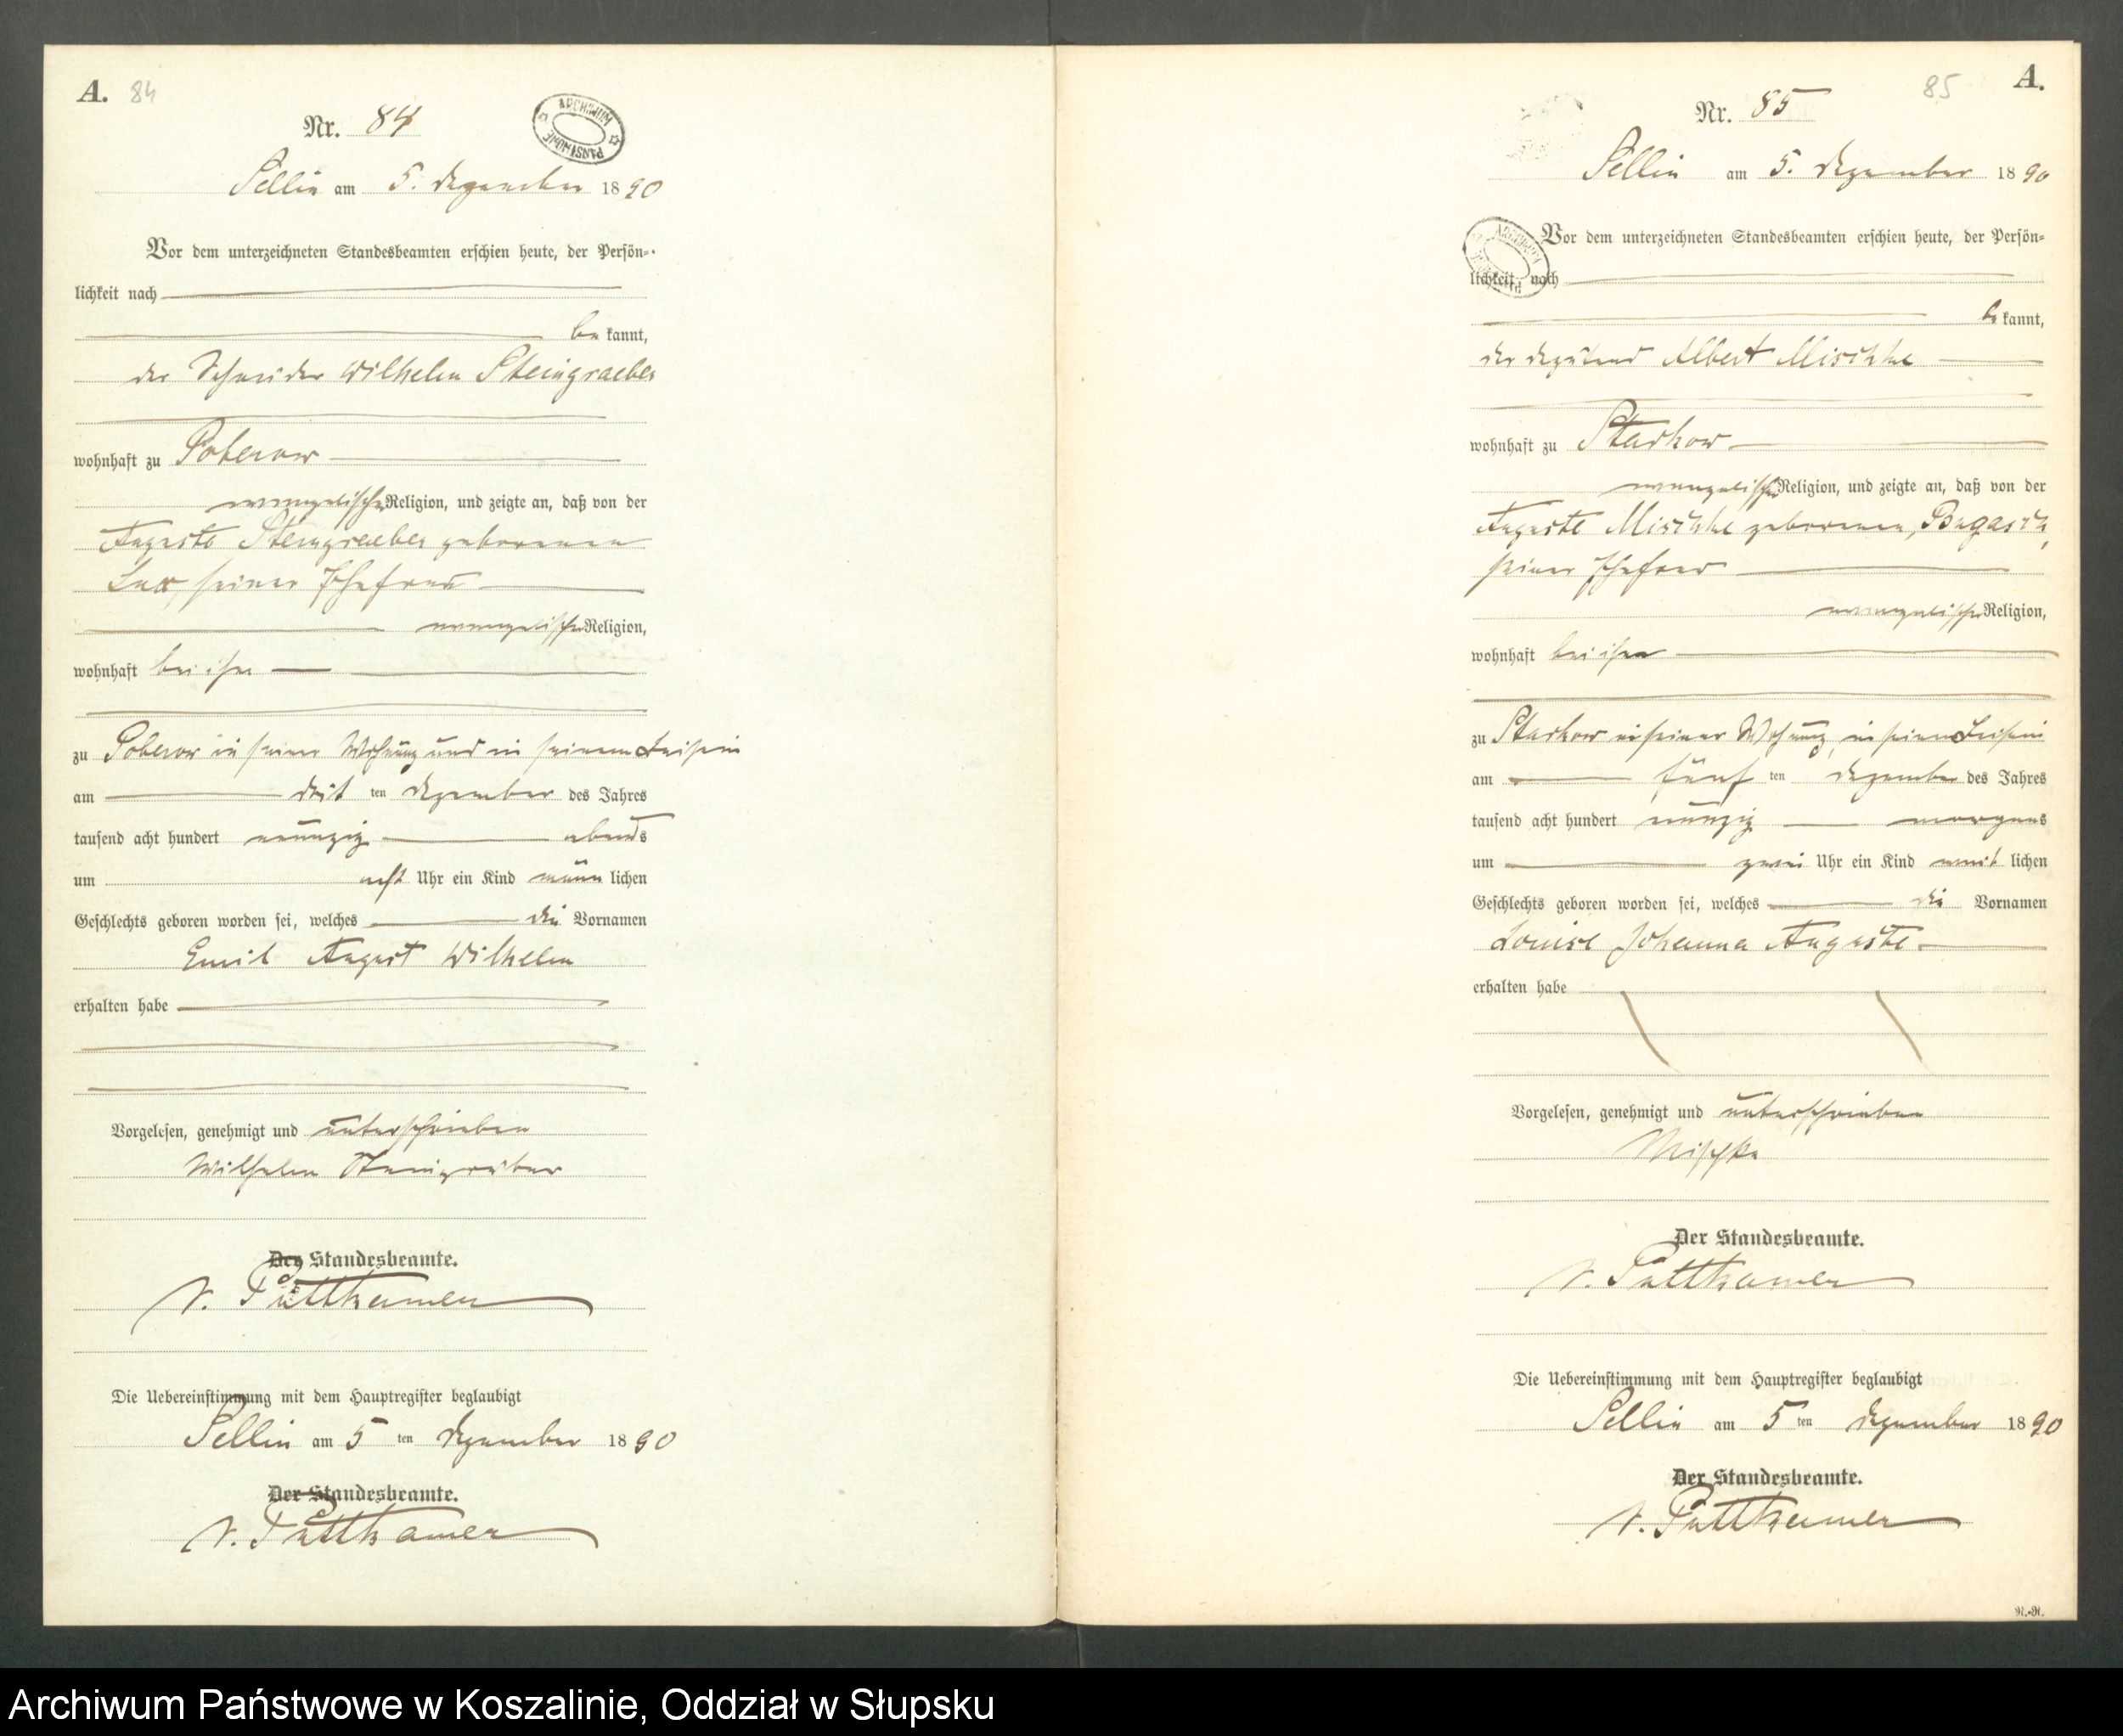 A. 84
Nr. 84
ARCHIWUM PAŃSTWOWE
Sellin am 5. Dezember 1890
Vor dem unterzeichneten Standesbeamten erschien heute, der Persön-
lichkeit nach
bekannt,
der Schneider Wilhelm Steingraeber
wohnhaft zu Poberow
evangelischer Religion, und zeigte an, daß von der
Auguste Steingraeber geborenen
seiner Ehefrau
evangelischer Religion,
wohnhaft bei ihm
zu Poberow in seiner Wohnung und in seinem Beisein
am dritten Dezember des Jahres
tausend acht hundert neunzig abends
um acht Uhr ein Kind männlichen
Geschlechts geboren worden sei, welches die Vornamen
Emil August Wilhelm
erhalten habe
Vorgelesen, genehmigt und unterschrieben
Wilhelm Steingräber
Der Standesbeamte.
v. Puttkamer
Die Uebereinstimmung mit dem Hauptregister beglaubigt
Sellin am 5ten Dezember 1890
Der Standesbeamte.
v. Puttkamer
85 A.
Nr. 85
Sellin am 5. Dezember 1890
Vor dem unterzeichneten Standesbeamten erschien heute, der Persön-
lichkeit nach
bekannt,
der Deputant Albert Mischke
wohnhaft zu Starkow
evangelischer Religion, und zeigte an, daß von der
Auguste Mischke geborenen,
seiner Ehefrau
evangelischer Religion,
wohnhaft bei ihm
zu Starkow in seiner Wohnung, in seinem Beisein
am fünften Dezember des Jahres
tausend acht hundert neunzig morgens
um zwei Uhr ein Kind weiblichen
Geschlechts geboren worden sei, welches die Vornamen
Louise Johanna Auguste
erhalten habe
Vorgelesen, genehmigt und unterschrieben
Mischke
Der Standesbeamte.
v. Puttkamer
Die Uebereinstimmung mit dem Hauptregister beglaubigt
Sellin am 5ten Dezember 1890
Der Standesbeamte.
v. Puttkamer
N.-N.
Archiwum Państwowe w Koszalinie, Oddział w Słupsku